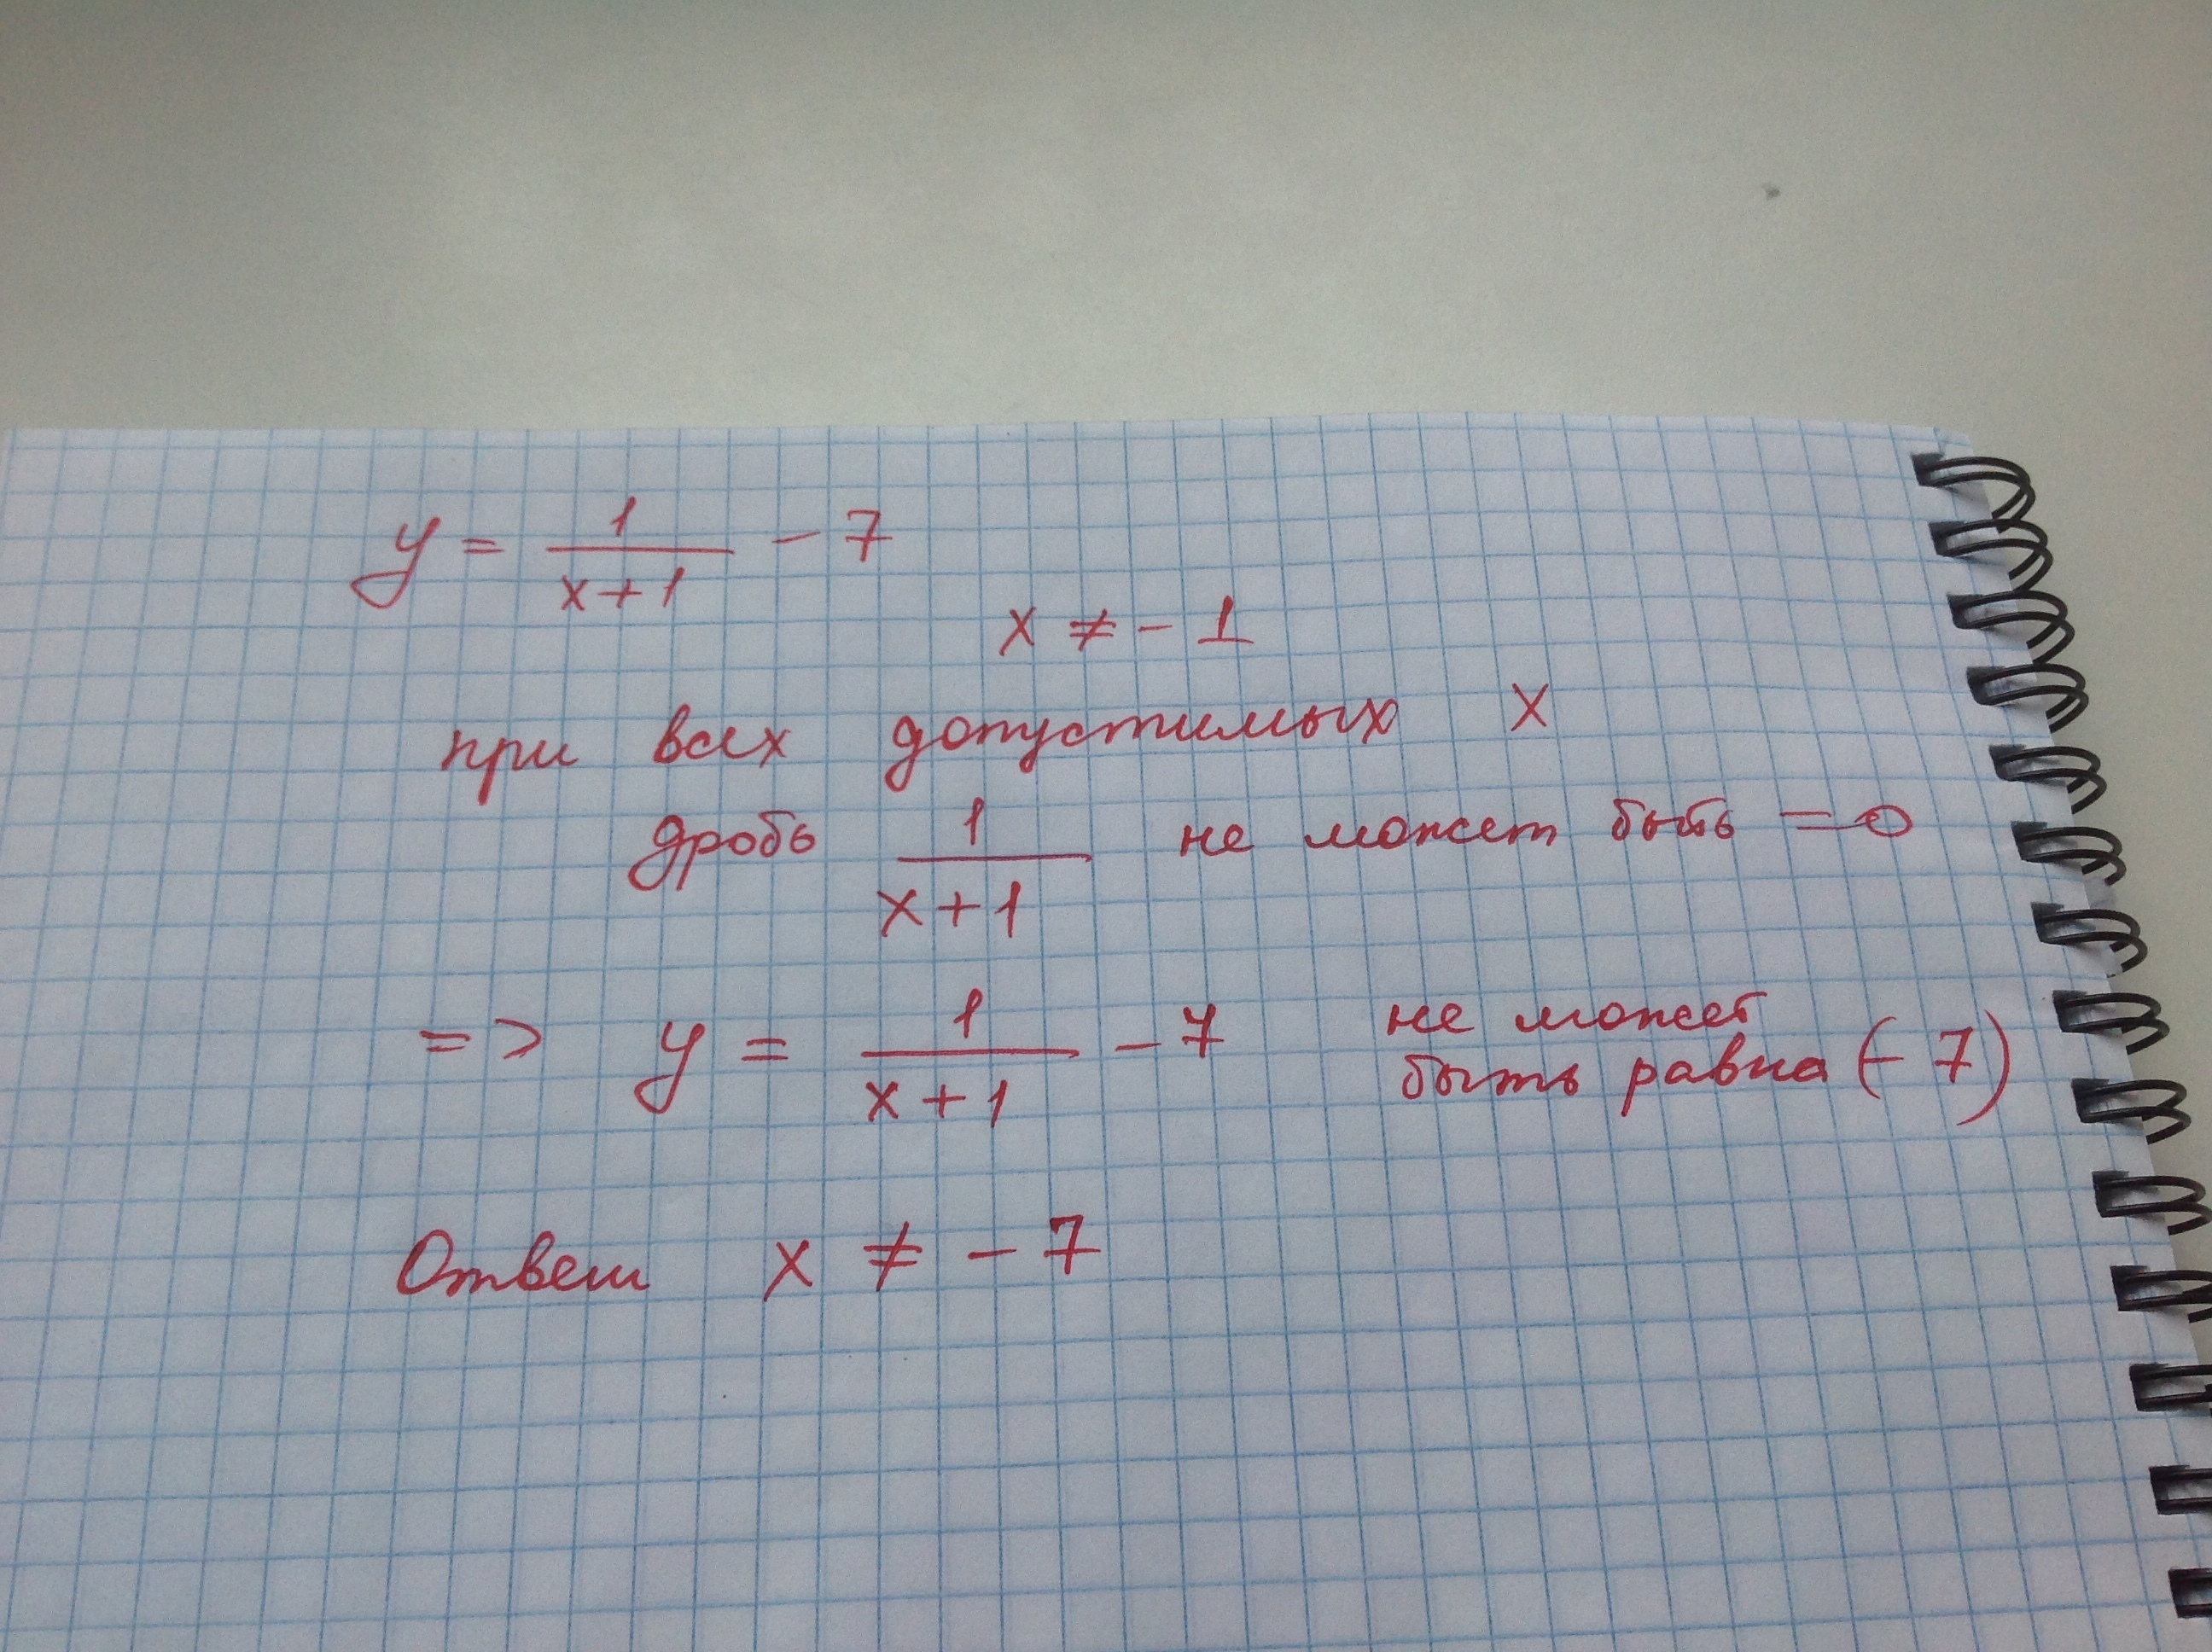 y = 1/(x+1) - 7
x ≠ - 1
при всех допустимых x
дробь 1/(x+1) не может быть = 0
=> y = 1/(x+1) - 7 не может
быть равна (- 7)
Ответ x ≠ - 7